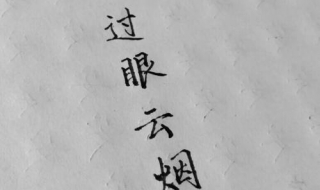 过眼云烟